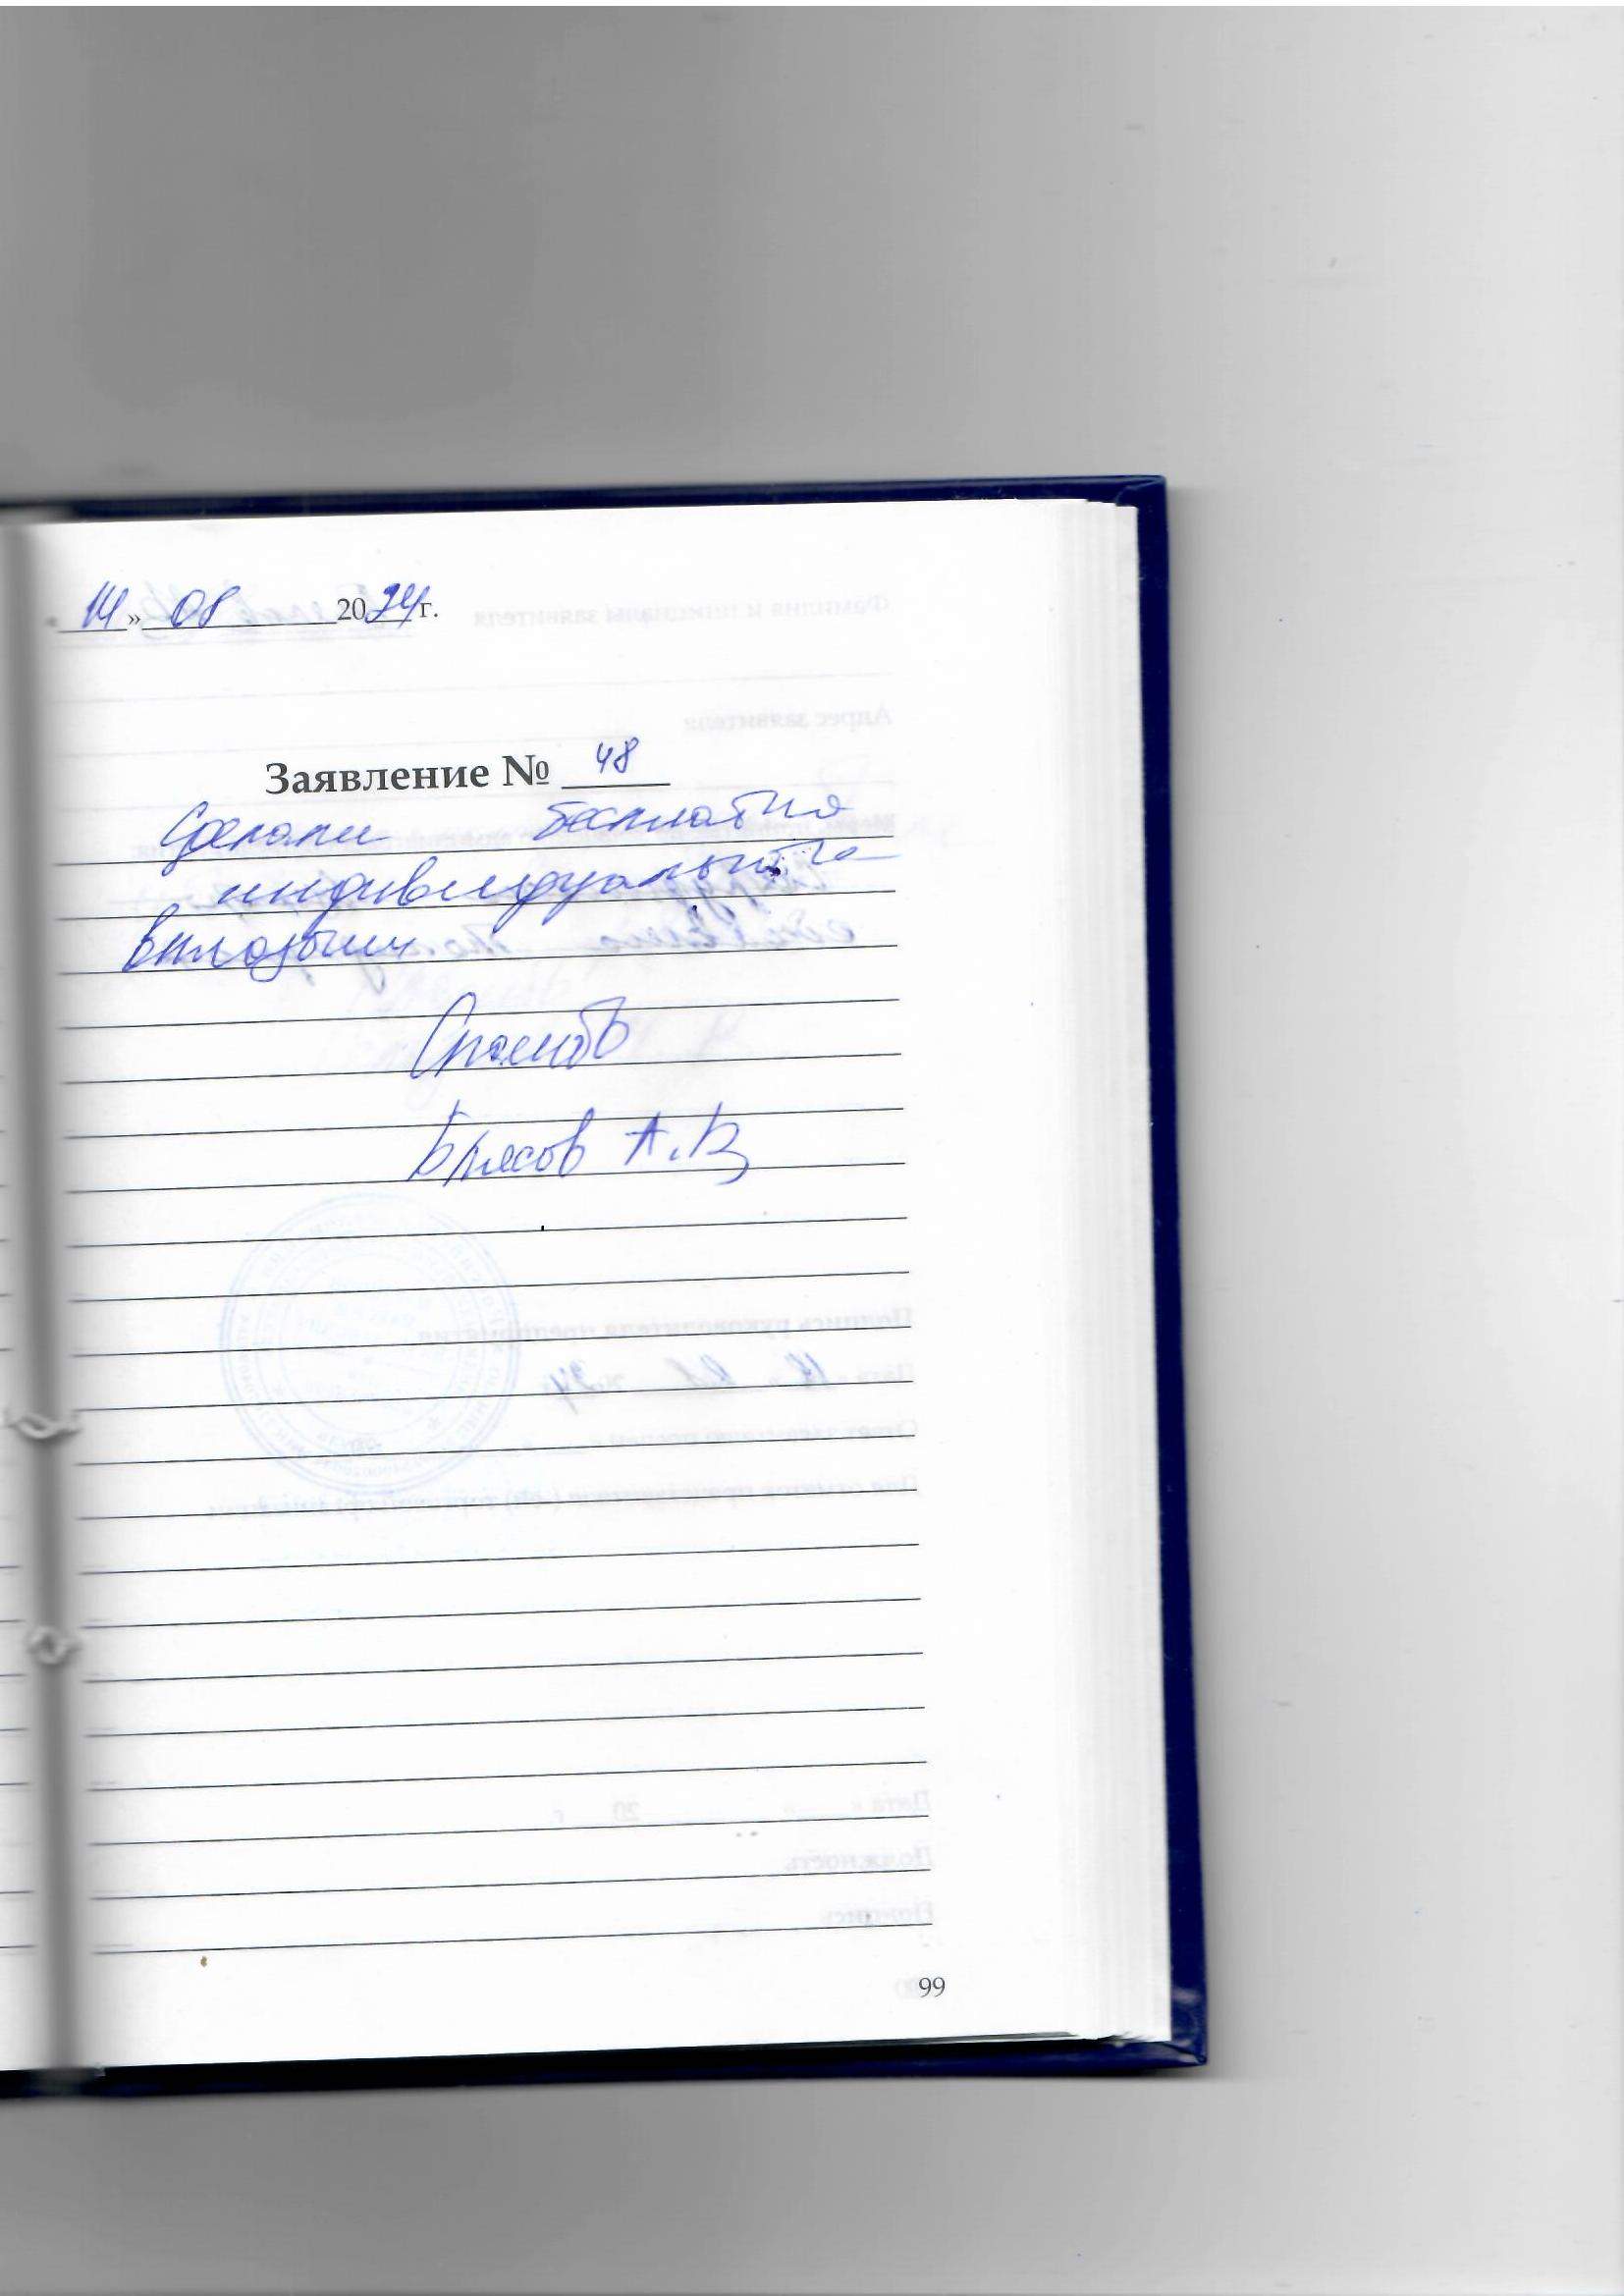 «14» 08 2024г.
Заявление № 48
Сделали бесплатно
индивидуальный
вкладыши
Спасибо
Брысов А.В
99